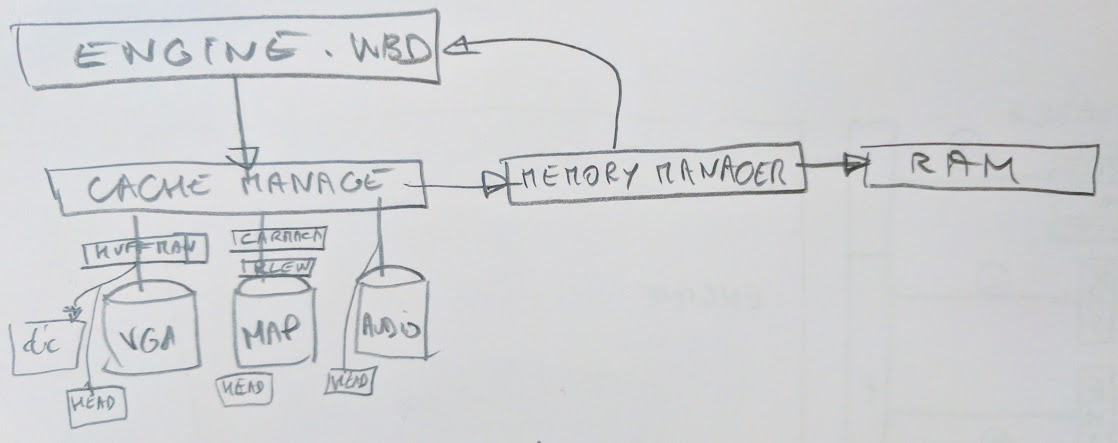 ENGINE. WBD
CACHE MANAGE
MEMORY MANAGER
RAM
HUFFMAN
CARMACK
RLEW
dic
VGA
MAP
AUDIO
HEAD
HEAD
HEAD